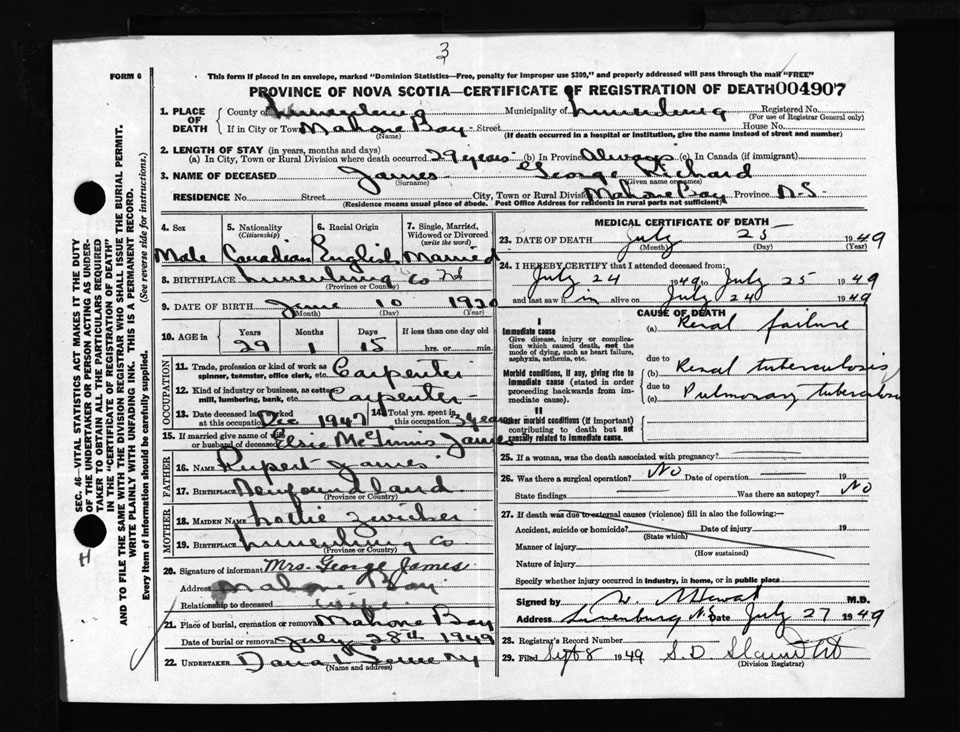 3
FORM 6
This form if placed in an envelope, marked "Dominion Statistics—Free, penalty for improper use $300," and properly addressed will pass through the mail "FREE"
PROVINCE OF NOVA SCOTIA—CERTIFICATE OF REGISTRATION OF DEATH 004907
1. PLACE OF DEATH County of Lunenburg Municipality of Lunenburg Registered No. (For use of Registrar General only)
If in City or Town Mahone Bay Street House No.
(Name) (If death occurred in a hospital or institution, give the name instead of street and number)
2. LENGTH OF STAY (in years, months and days)
(a) In City, Town or Rural Division where death occurred 29 years (b) In Province Always (c) In Canada (if immigrant)
3. NAME OF DECEASED James George Richard
(Surname) (Given name or names)
RESIDENCE No. Street City, Town or Rural Division Mahone Bay Province N.S.
(Residence means usual place of abode. Post Office Address for residents in rural parts not sufficient)
4. Sex 5. Nationality (Citizenship) 6. Racial Origin 7. Single, Married, Widowed or Divorced (write the word)
Male Canadian English Married
8. BIRTHPLACE Lunenburg Co
(Province or Country)
9. DATE OF BIRTH June 10 1920
(Month) (Day) (Year)
10. AGE in Years Months Days If less than one day old
29 1 15 hrs. or min.
OCCUPATION
11. Trade, profession or kind of work as spinner, teamster, office clerk, etc. Carpenter
12. Kind of industry or business, as cotton mill, lumbering, bank, etc. Carpenter
13. Date deceased last worked at this occupation Dec 1947 14. Total yrs. spent in this occupation 3 years
15. If married give name of wife or husband of deceased Elsie McGinnis James
FATHER
16. NAME Rupert James
17. BIRTHPLACE Newfoundland
(Province or Country)
MOTHER
18. MAIDEN NAME Lottie Zwicker
19. BIRTHPLACE Lunenburg Co
(Province or Country)
20. Signature of informant Mrs. George James
Address Mahone Bay
Relationship to deceased wife
21. Place of burial, cremation or removal Mahone Bay
Date of burial or removal July 28th 1949
22. UNDERTAKER
(Name and address)
MEDICAL CERTIFICATE OF DEATH
23. DATE OF DEATH July 25 1949
(Month) (Day) (Year)
24. I HEREBY CERTIFY that I attended deceased from:
July 24 1949 to July 25 1949
and last saw him alive on July 24 1949
CAUSE OF DEATH
I
Immediate cause
Give disease, injury or complication which caused death, not the mode of dying, such as heart failure, asphyxia, asthenia, etc.
(a) Renal failure
due to
Morbid conditions, if any, giving rise to immediate cause (stated in order proceeding backwards from immediate).
(b) Renal tuberculosis
due to
(c) Pulmonary tuberculosis
II
Other morbid conditions (if important) contributing to death but not causally related to immediate cause.
25. If a woman, was the death associated with pregnancy?
26. Was there a surgical operation? No Date of operation 19
State findings Was there an autopsy? No
27. If death was due to external causes (violence) fill in also the following:—
Accident, suicide or homicide? Date of injury 19
(State which)
Manner of injury
(How sustained)
Nature of injury
Specify whether injury occurred in industry, in home, or in public place
Signed by M.D.
Address Lunenburg N.S. Date July 27 1949
28. Registrar's Record Number
29. Filed Sept 8 1949 S.D.
(Division Registrar)
SEC. 46—VITAL STATISTICS ACT MAKES IT THE DUTY
OF THE UNDERTAKER OR PERSON ACTING AS UNDER-
TAKER TO OBTAIN ALL THE PARTICULARS REQUIRED
IN THE "CERTIFICATE OF REGISTRATION OF DEATH"
AND TO FILE THE SAME WITH THE DIVISION REGISTRAR WHO SHALL ISSUE THE BURIAL PERMIT.
WRITE PLAINLY WITH UNFADING INK. THIS IS A PERMANENT RECORD.
Every item of Information should be carefully supplied. (See reverse side for instructions.)
H